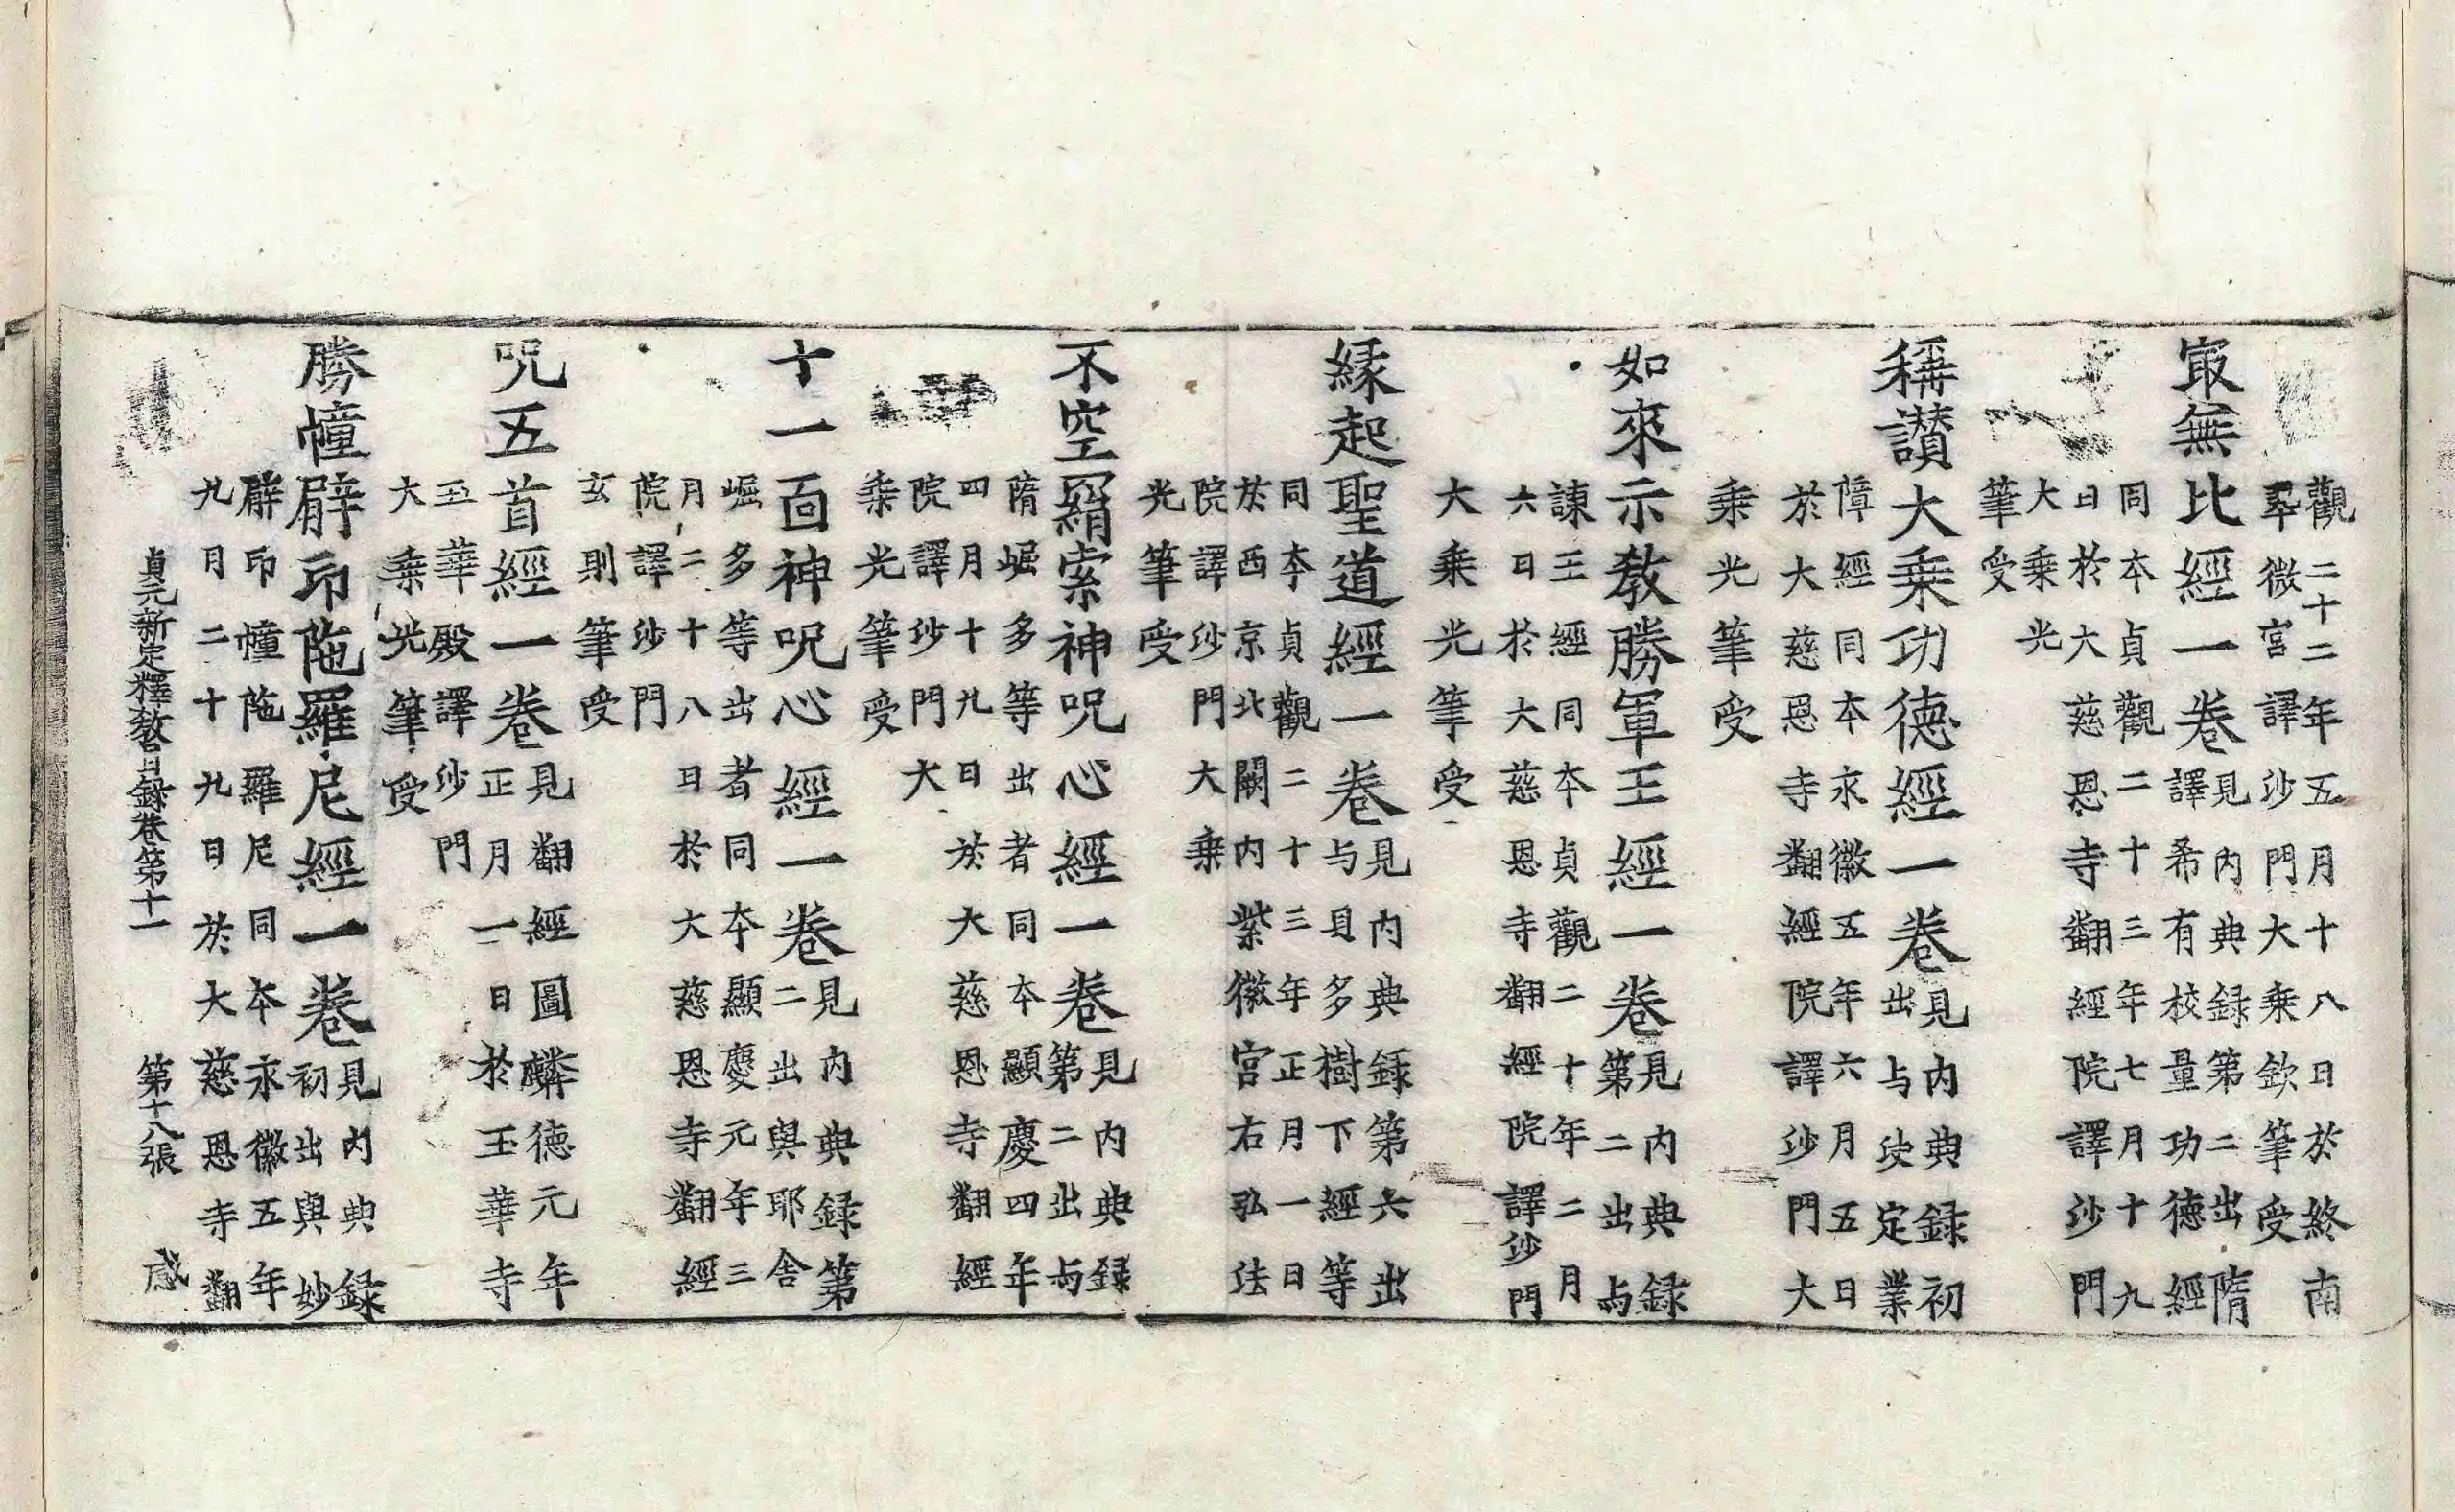 觀二十二年五月十八日於終南
翠微宮譯沙門大乘欽筆受
冣無比經一卷見內典錄第二出隋
譯希有校量功德經
同本貞觀二十三年七月十九
日於大慈恩寺翻經院譯沙門
大乘光
筆受
稱讃大乗功德經一卷見內典錄初
出与決定業
障經同本永徽五年六月五日
於大慈恩寺翻經院譯沙門大
乗光筆受
如來示教勝軍王經一卷見內典錄
第二出與
諫王經同本貞觀二十年二月
六日於大慈恩寺翻經院譯沙門
大乗光筆受
緣起聖道經一卷見內典錄第六出
与貝多樹下經等
同本貞觀二十三年正月一日
於西京北闕內紫微宮右弘法
院譯沙門大乗
光筆受
不空羂索神呪心經一卷見內典錄
第二出與
隋崛多等出者同本顯慶四年
四月十九日於大慈恩寺翻經
院譯沙門大
乗光筆受
十一面神呪心經一卷見內典錄第
二出與耶舍
崛多等出者同本顯慶元年三
月二十八日於大慈恩寺翻經
院譯沙門
玄則筆受
呪五首經一卷見翻經圖麟德元年
正月一日於玉華寺
玉華殿譯沙門
大乗光筆受
勝幢臂印陁羅尼經一卷見內典錄
初出與妙
臂印幢陁羅尼同本永徽五年
九月二十九日於大慈恩寺翻
貞元新定釋教目錄卷第十一 第十八張 感